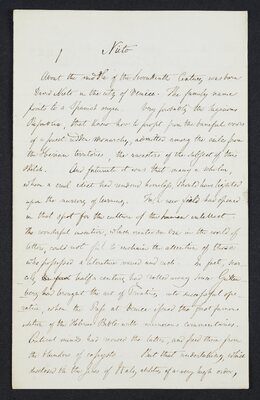 1
Nieto
About the middle of the seventeenth Century, was born
David Nieto in the city of Venice. The family name
points to a Spanish origin. Very possibly the sagacious
Republic, that knew how to profit from the baneful errors
of a priest ridden Monarchy, admitted among the exiles from
the Iberian territories, the ancestors of the subject of this
sketch. And fortunate it was that many a scholar,
whom a cruel edict had rendered homeless, should have lighted
upon the nursery of learning. For a new field had opened
in that spot for the culture of the human intellect.
The wonderful invention, which created an era in the world of
letters, could not fail to enchain the attention of those
who possessed a literature varied and rich. In fact, scar-
cely half a century had rolled away since Guttem-
berg had brought the art of Printing, into successful ope-
ration, when the Press at Venice issued the most famous
edition of the Hebrew Bible with numerous commentaries.
Critical minds had revised the latter, and freed them from
the blunders of copyists. But that undertaking, which
disclosed in the Jews of Italy, editors of a very high order,